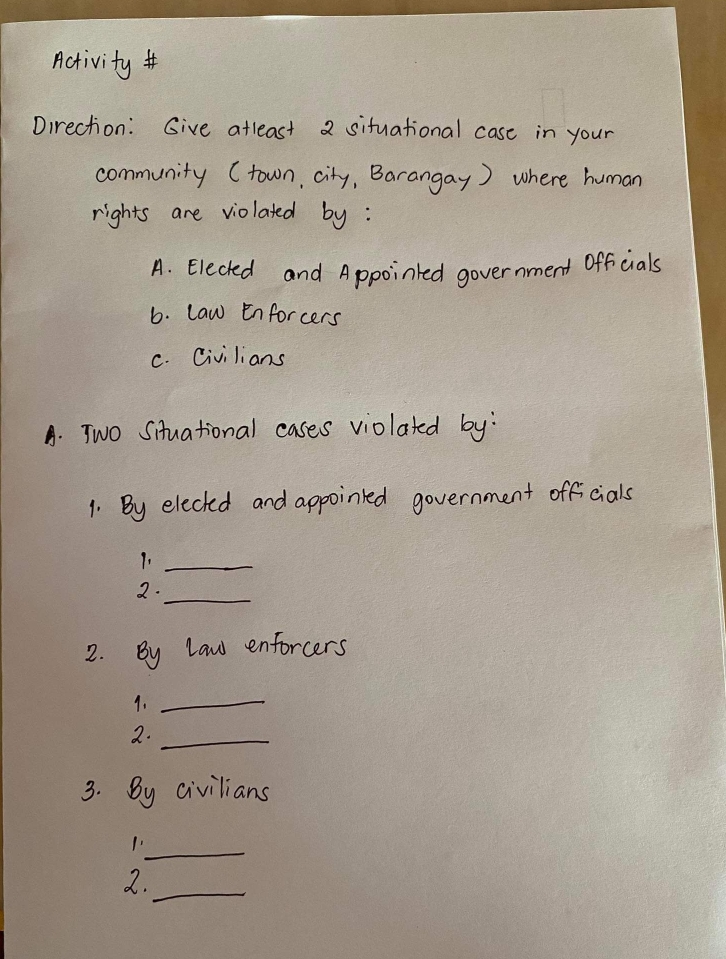 Activity #
Direction: Give atleast 2 situational case in your
community (town, city, Barangay) where human
rights are violated by :
A. Elected and Appointed government Officials
b. Law Enforcers
c. Civilians
A. TWO Situational cases violated by:
1. By elected and appointed government officials
1. ______
2. ______
2. By Law enforcers
1. ______
2. ______
3. By civilians
1. ______
2. ______